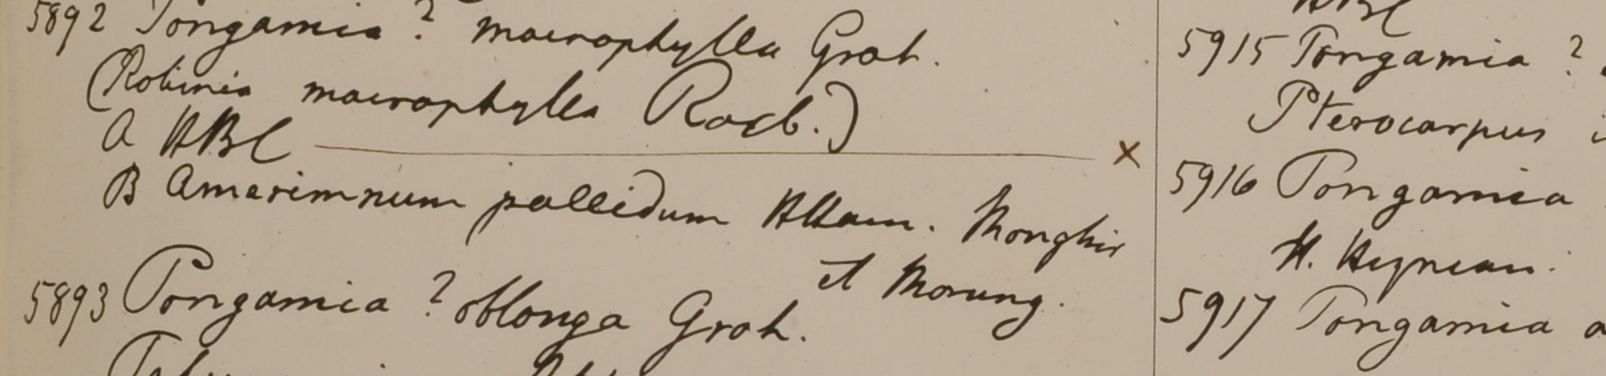 5892 Pongamia ? macrophylla Grah.
(Robinia macrophylla Roxb.)
A HBC
B Amerimnum pallidum HHam. Monghir
et Morung.
5893 Pongamia ? oblonga Grah.
HBC
5915 Pongamia ?
Pterocarpus
5916 Pongamia
H. Heynean.
5917 Pongamia